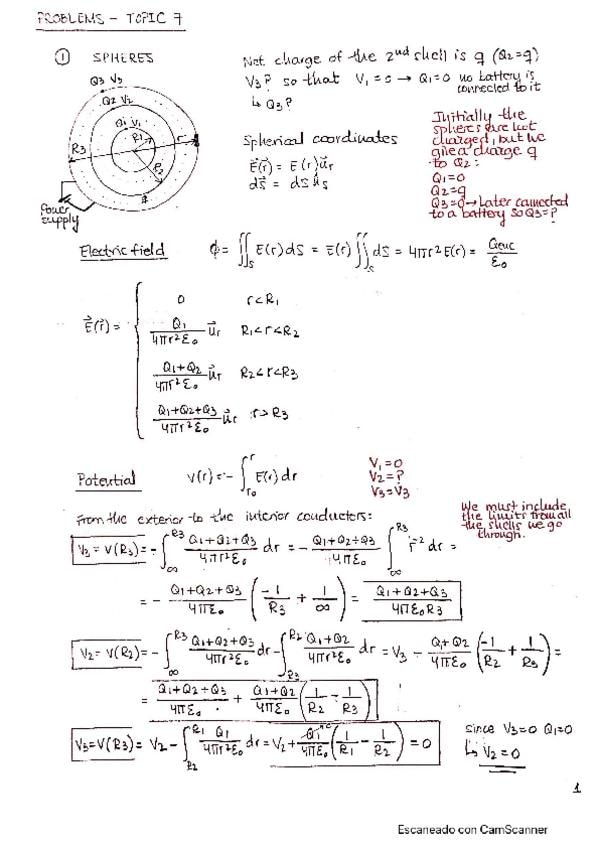 PROBLEMS - TOPIC 7
① SPHERES
Net charge of the 2nd shell is q (Q2=q)
V3? so that V1=0 → Q1=0 no battery is
connected to it
↳ Q3?
Q3 V3
Q2 V2
Q1 V1
R1
R2
R3
r
Power
supply
Spherical coordinates
E⃗(r) = E(r)u⃗r
dS⃗ = dS u⃗s
Initially the
spheres are not
charged, but we
give a charge q
to Q2:
Q1=0
Q2=q
Q3=0 → Later connected
to a battery so Q3=?
Electric field
ϕ = ∬s E(r)dS = E(r)∬s dS = 4πr²E(r) = Qenc/ε0
E⃗(r) = {
0 r<R1
Q1/4πr²ε0 u⃗r R1<r<R2
Q1+Q2/4πr²ε0 u⃗r R2<r<R3
Q1+Q2+Q3/4πr²ε0 u⃗r r>R3
Potential
V(r) = -∫r0^r E(r)dr
V1=0
V2=?
V3=V3
From the exterior to the interior conductors:
We must include
the limits from all
the shells we go
through.
V3 = V(R3) = -∫∞^R3 Q1+Q2+Q3/4πr²ε0 dr = -Q1+Q2+Q3/4πε0 ∫∞^R3 r⁻² dr =
= -Q1+Q2+Q3/4πε0 (-1/R3 + 1/∞) = Q1+Q2+Q3/4πε0R3
V2 = V(R2) = -∫∞^R3 Q1+Q2+Q3/4πr²ε0 dr - ∫R3^R2 Q1+Q2/4πr²ε0 dr = V3 - Q1+Q2/4πε0 (-1/R2 + 1/R3) =
= Q1+Q2+Q3/4πε0 + Q1+Q2/4πε0 (1/R2 - 1/R3)
V3=V(R3) = V2 - ∫R2^R1 Q1/4πr²ε0 dr = V2 + Q1/4πε0 (1/R1 - 1/R2) = 0
since V3=0 Q1=0
↳ V2=0
1
Escaneado con CamScanner